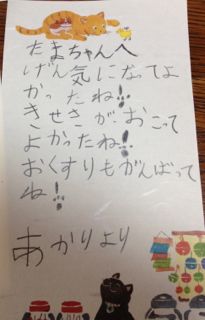 たまちゃんへ
げん気になってよ
かったね!!
きせきが、おこって
よかったね!!
おくすりもがんばって
ね!!
あかりより